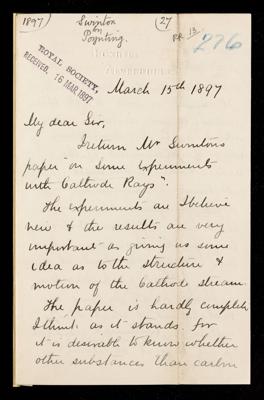 1897)
Swinton
on
Poynting.
(27)
RR 13
276
ROYAL SOCIETY,
RECEIVED, 16 MAR 1897
March 15th 1897
My dear Sir,
I return Mr Swinton's
paper "on Some Experiments
with Cathode Rays".
The experiments are I believe
new & the results are very
important as giving us some
idea as to the structure &
motion of the Cathode stream.
The paper is hardly complete
I think as it stands. for
it is desirable to know whether
other substances than carbon